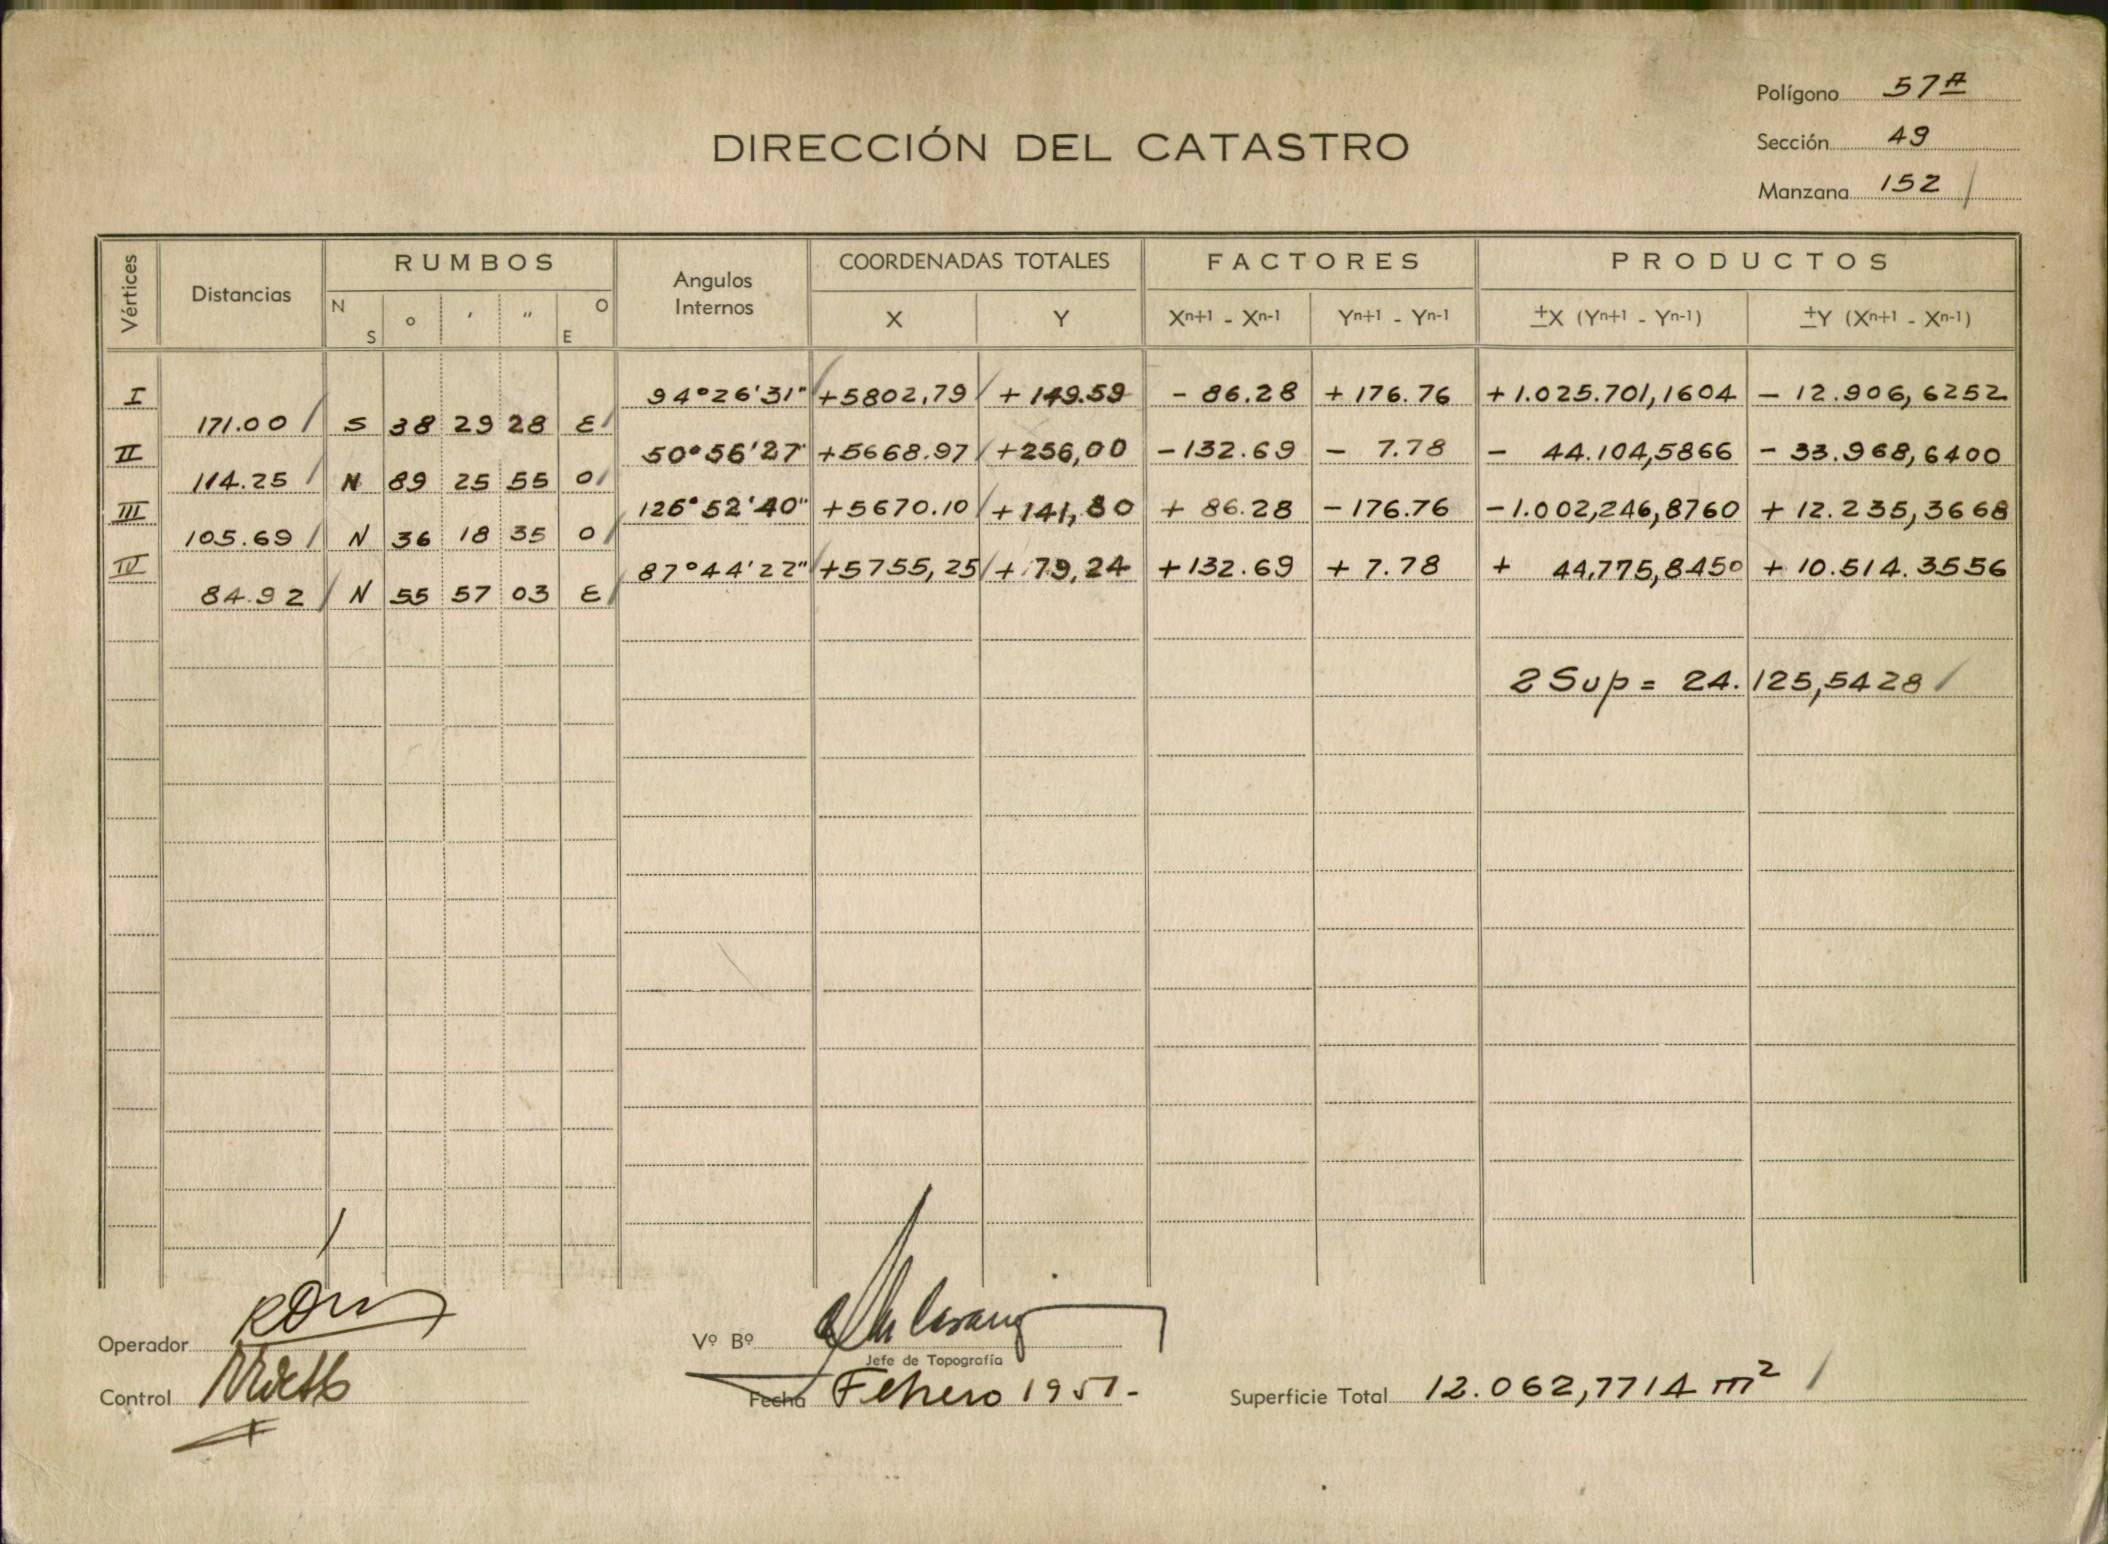 Polígono 57A
DIRECCIÓN DEL CATASTRO
Sección 49
Manzana 152 /
Vértices Distancias RUMBOS Angulos Internos COORDENADAS TOTALES FACTORES PRODUCTOS
N S ° ′ ″ O E X Y Xn+1 - Xn-1 Yn+1 - Yn-1 ±X (Yn+1 - Yn-1) ±Y (Xn+1 - Xn-1)
I 94°26'31" +5802,79 + 149.59 - 86.28 + 176.76 +1.025.701,1604 - 12.906,6252
171.00 / S 38 29 28 E /
II 50°56'27" +5668.97 +256,00 -132.69 - 7.78 - 44.104,5866 - 33.968,6400
114.25 / N 89 25 55 O /
III 126°52'40" +5670.10 +141,80 + 86.28 -176.76 -1.002,246,8760 + 12.235,3668
105.69 / N 36 18 35 O /
IV 87°44'22" +5755,25 + 79,24 +132.69 + 7.78 + 44,775,8450 + 10.514.3556
84.92 / N 55 57 03 E /
2 Sup = 24.125,5428 /
Operador
Vº Bº
Jefe de Topografía
Control
Fecha Febrero 1951.-
Superficie Total 12.062,7714 m² /